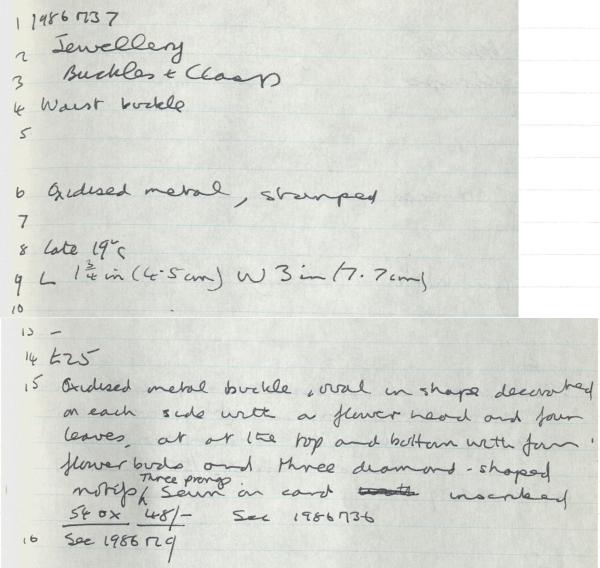 1 1986 M37
2 Jewellery
3 Buckles & Clasp
4 Waist buckle
5
6 Oxidised metal, stamped
7
8 Late 19thc
9 L 1 3/4 in (4.5 cm) W 3 in (7.7 cm)
10
13 –
14 £25
15 Oxidised metal buckle, oval in shape decorated
on each side with a flower head and four
leaves, at at the top and bottom with four
flower buds and three diamond-shaped
Three prongs
motifs Sewn on card inscribed
54 ox 48/- See 1986 M36
16 See 1986 M29